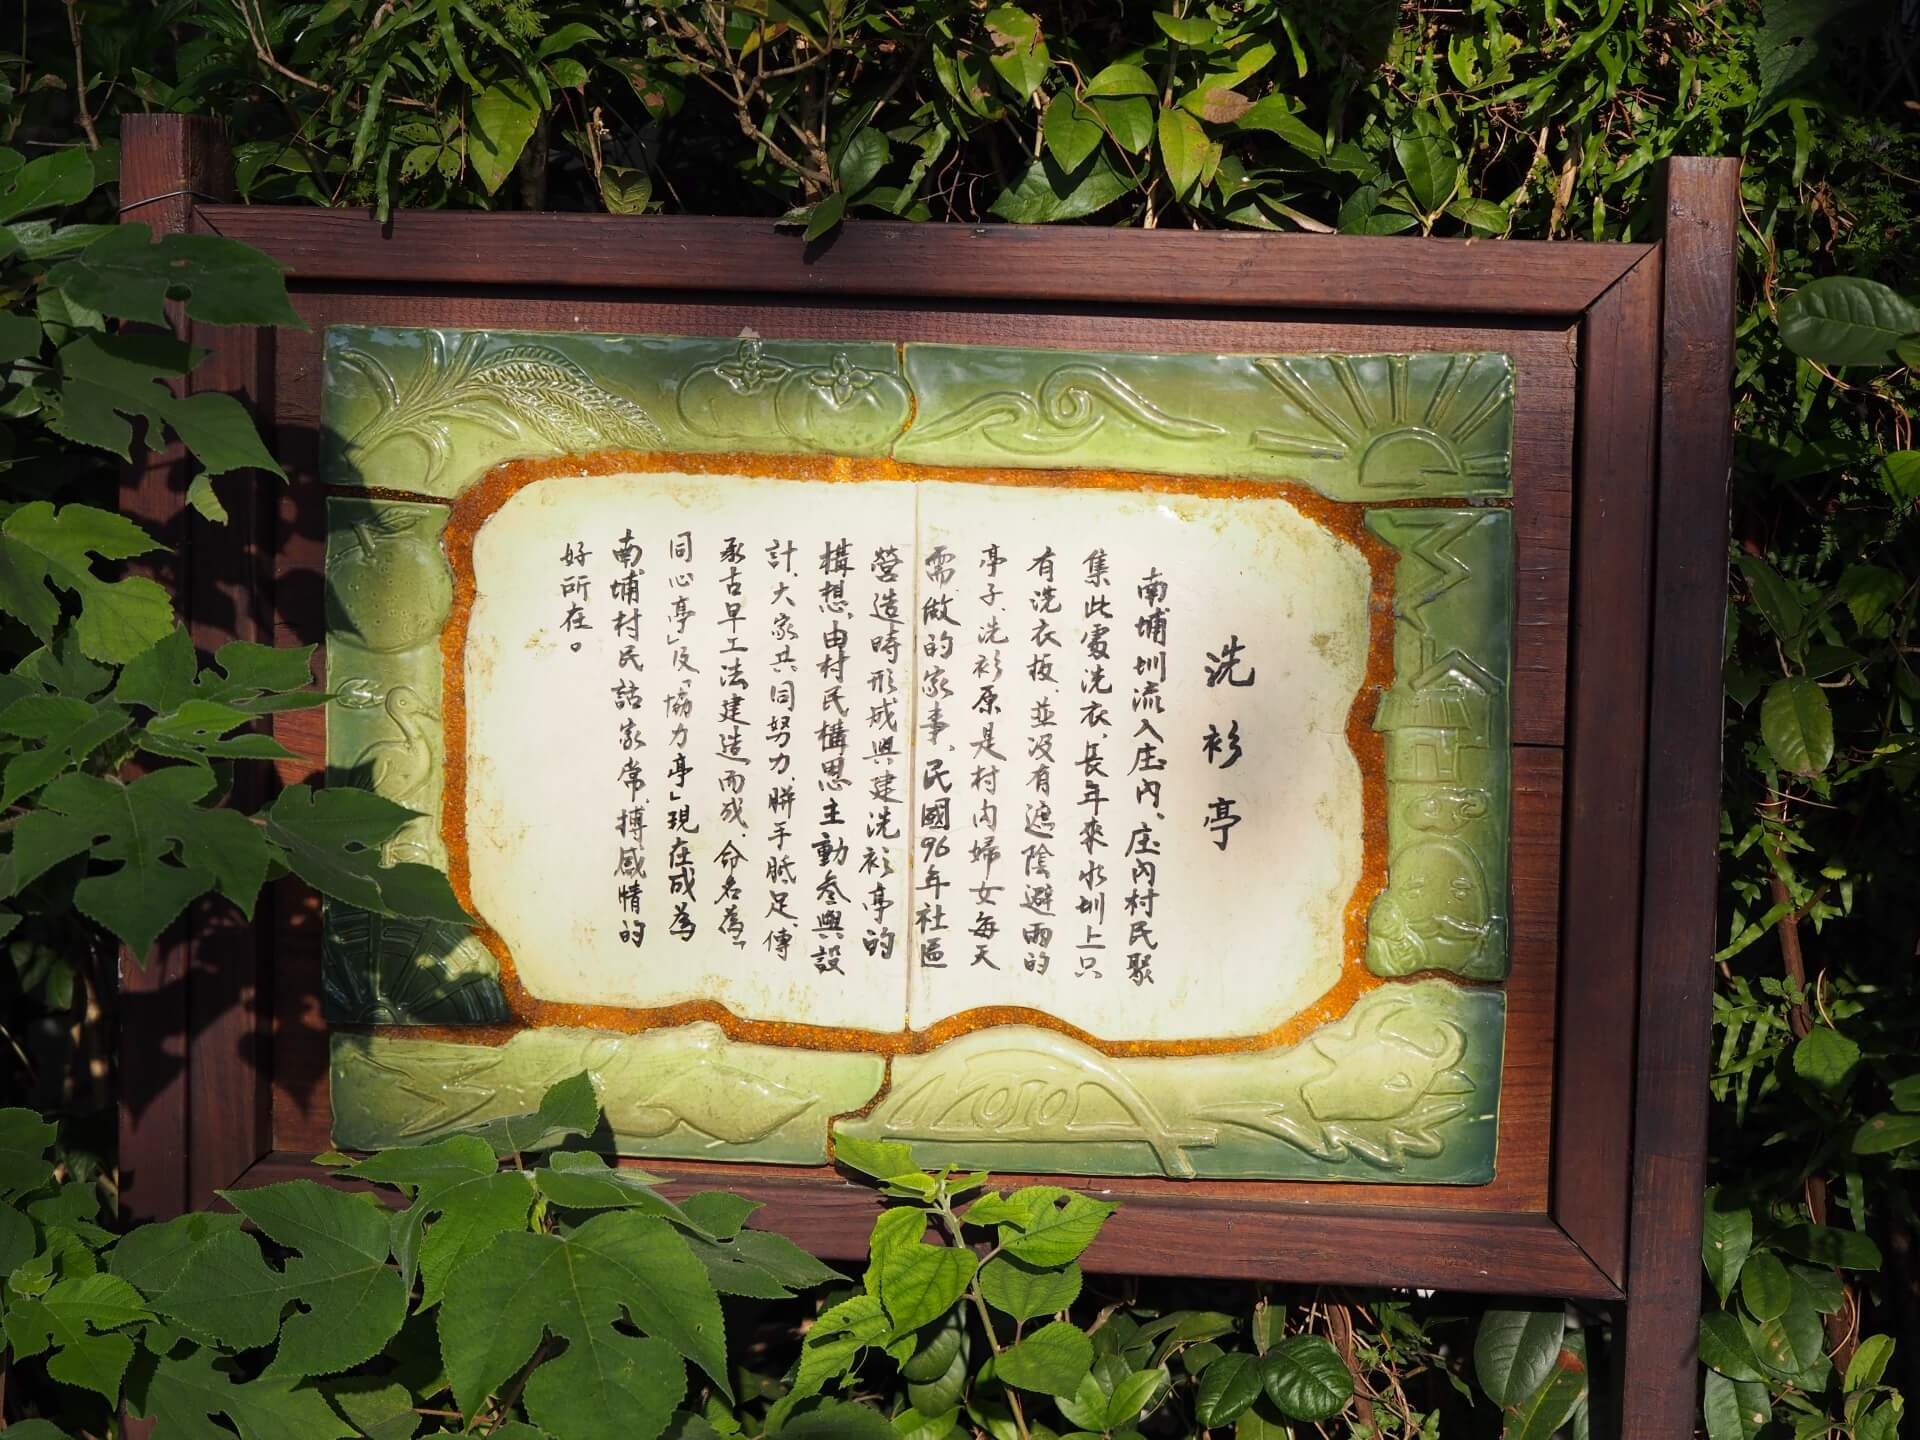 洗衫亭
南埔圳流入庄內、庄內村民聚
集此處洗衣、長年來水圳上只
有洗衣板、並沒有遮陰避雨的
亭子、洗衫原是村內婦女每天
需做的家事、民國96年社區
營造時形成興建洗衫亭的
構想、由村民構思主動參與設
計、大家共同努力、胼手胝足、傳
承古早工法建造而成、命名為「
同心亭」及「協力亭」現在成為
南埔村民話家常、搏感情的
好所在。